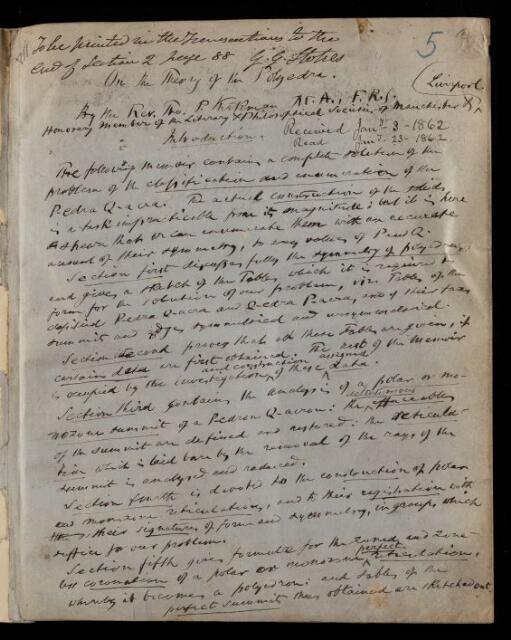 To be printed in the Transactions to the
end of Section 2 page 88 G. G. Stokes
5
On the Theory of the Polyedra.
(Liverpool
By the Rev. Tho. P. Kirkman M.A., F.R.S.
Honorary Member of the Literary & Philosophical Society of Manchester &c
Introduction. Received Jany 3 - 1862
Read Jany - 23 - 1862
The following Memoir contains a complete solution of the
problem of the classification and enumeration of the
P-edra Q-acra. The actual construction of the solids
is a task impracticable from its magnitude: but it is here
shewn that we can enumerate them with an accurate
account of their symmetry, to any values of P and Q.
Section first discusses fully the symmetry of polyedra,
and gives a sketch of the Tables which it is required to
form for the solution of our problem, viz. Tables of the
classified P-edra Q-acra and Q-edra P-acra, and of their faces
summits and edges symmetrical and unsymmetrical.
Section second proves that all these Tables are given, if
certain data are first obtained. The rest of the Memoir
is occupied by the investigation and construction of these assigned data.
Section third contains the analysis of a polar or mo-
nozone summit of a P-edron Q-acron: the deltotomous effaceables
of the summit are defined and restored: the reticula-
tion which is laid bare by the removal of the rays of the
summit is analysed and reduced.
Section fourth is devoted to the construction of polar
and monozone reticulations, and to their registration with
their signatures of form and symmetry, in groups, which
suffice for our problem.
Section fifth gives formulæ for the zoned and zone-
less coronation of a polar or monozone perfect reticulation,
whereby it becomes a polyedron: and Tables of the
perfect summits thus obtained are sketched out.